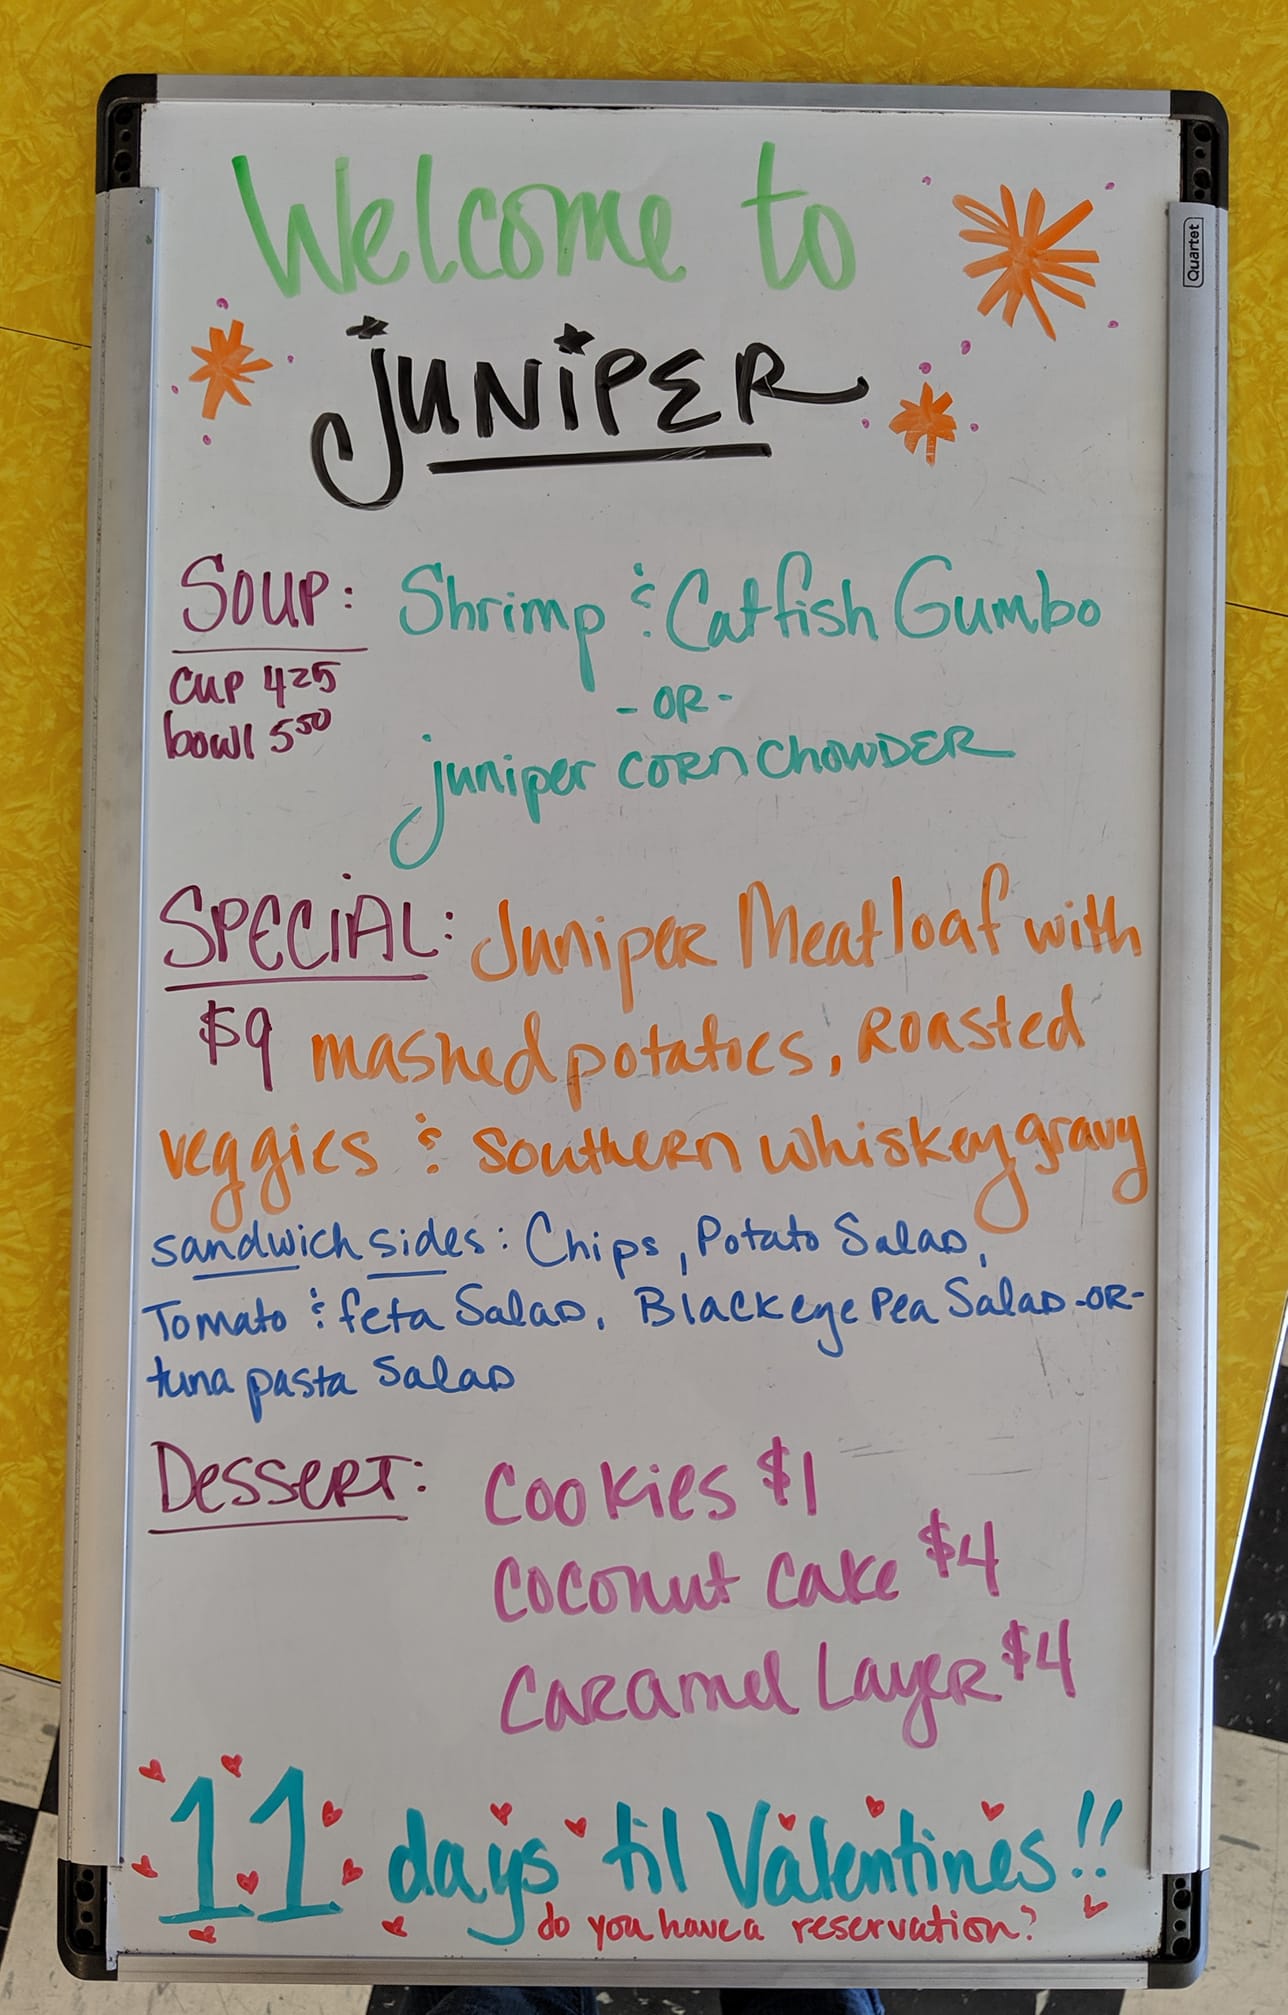 Welcome to
Quartet
JUNiPER
SOUP: Shrimp & Catfish Gumbo
cup 425
bowl 550
- OR -
juniper CORN CHOWDER
SPECIAL: Juniper Meatloaf with
$9 mashed potatoes, Roasted
veggies & southern whiskey gravy
sandwich sides: Chips, Potato Salad,
Tomato & feta Salad, Blackeye Pea Salad -OR-
tuna pasta Salad
DESSERT: Cookies $1
Coconut Cake $4
Caramel Layer $4
11 days 'til Valentines!!
do you have a reservation?